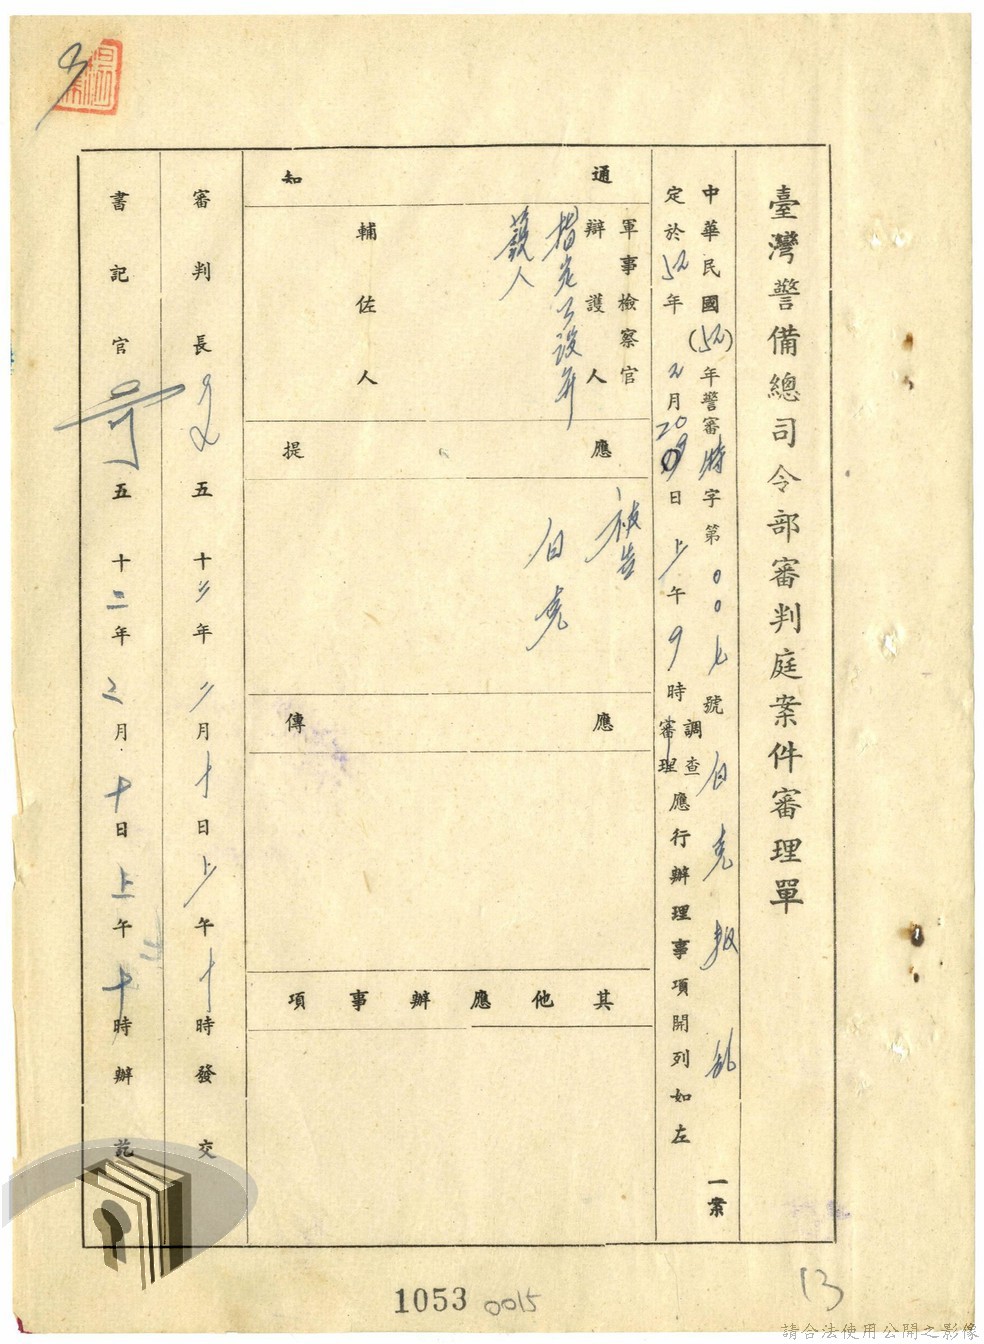 臺灣警備總司令部審判庭案件審理單
中華民國(52)年警審特字第007號白克叛亂一案
定於52年2月20日上午9時調查審理應行辦理事項開列如左
通知
軍事檢察官
辯護人
指定公設辯
護人
輔佐人
應提
被告
白克
應傳
其他應辦事項
審判長 五十二年二月十日上午十時發交
書記官 五十二年二月十日上午十時辦訖
1053
0015
13
請合法使用公開之影像